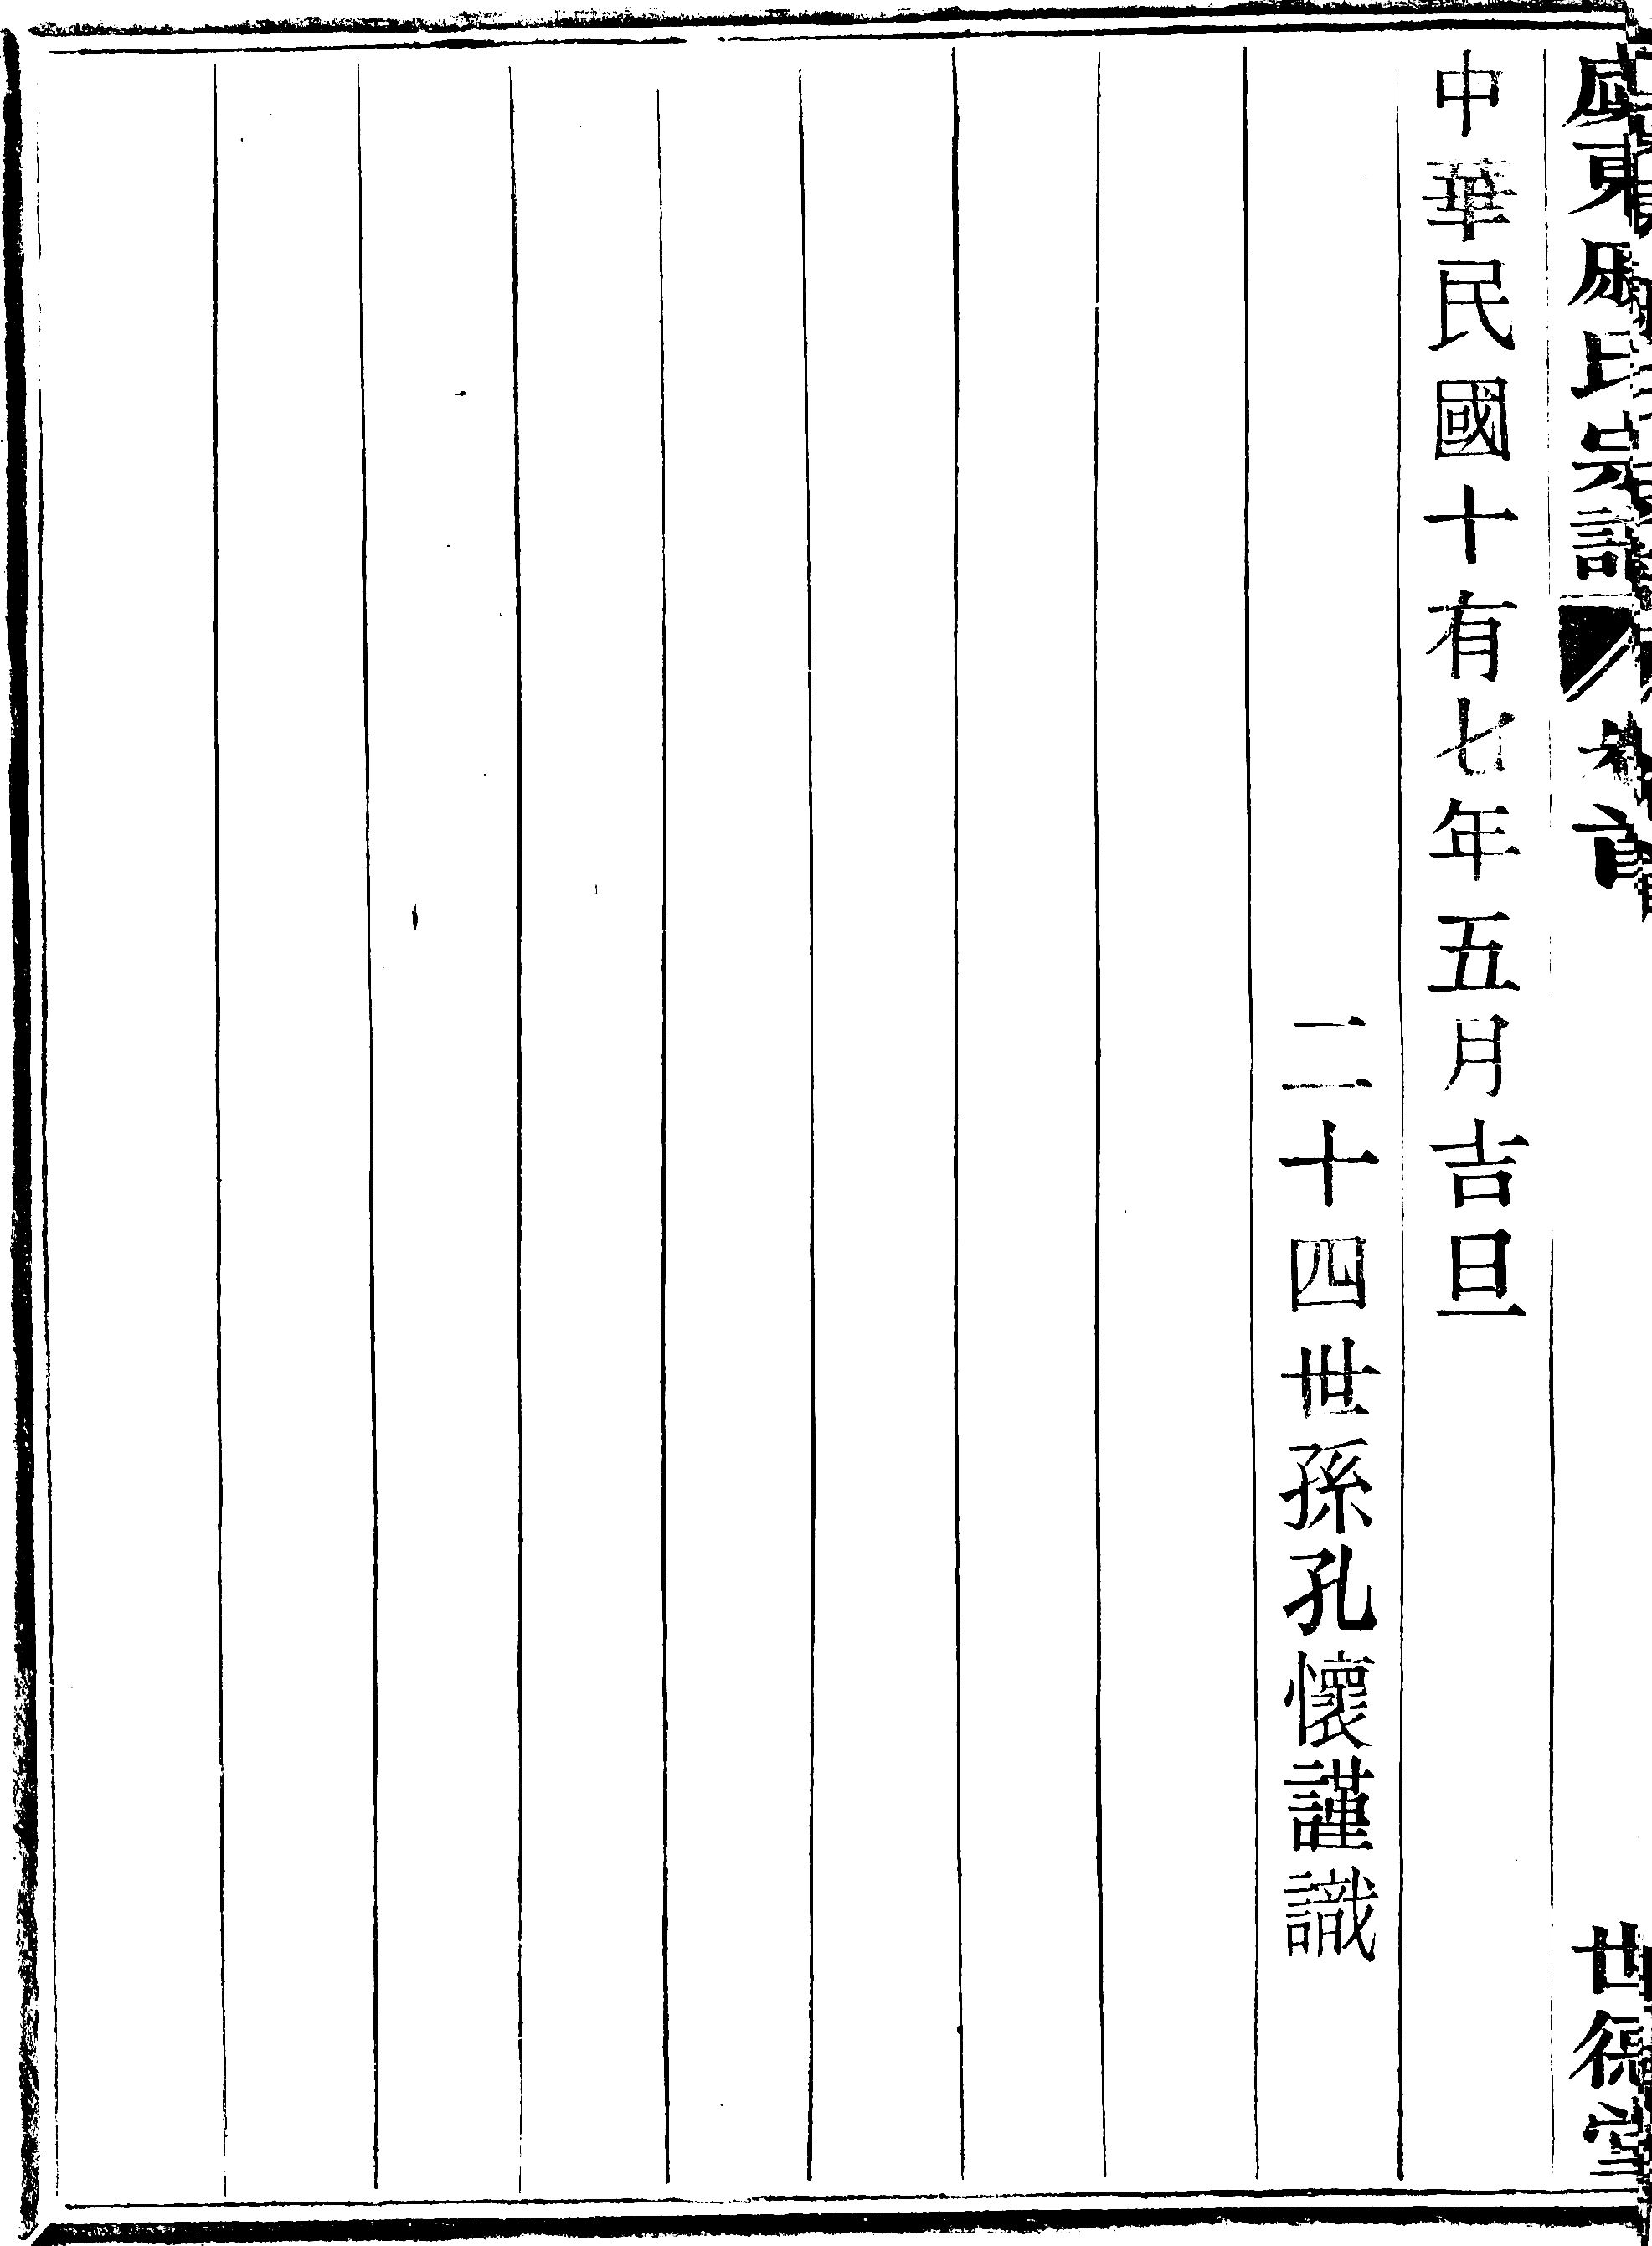 東 氏宗譜 卷首 世德堂
中華民國十有七年五月吉旦
二十四世孫孔懷謹識